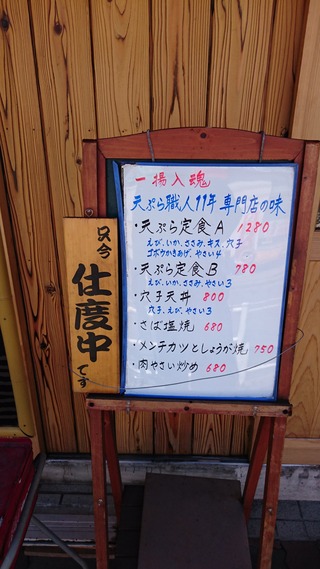 一揚入魂
天ぷら職人11年専門店の味
・天ぷら定食A 1280
えび、いか、ささみ、キス、穴子
ゴボウかきあげ、やさい4
・天ぷら定食B 780
えび、いか、ささみ、やさい3
・穴子天丼 800
穴子、えび、やさい3
・さば塩焼 680
・メンチカツとしょうが焼 750
・肉やさい炒め 680
只今
仕度中
です